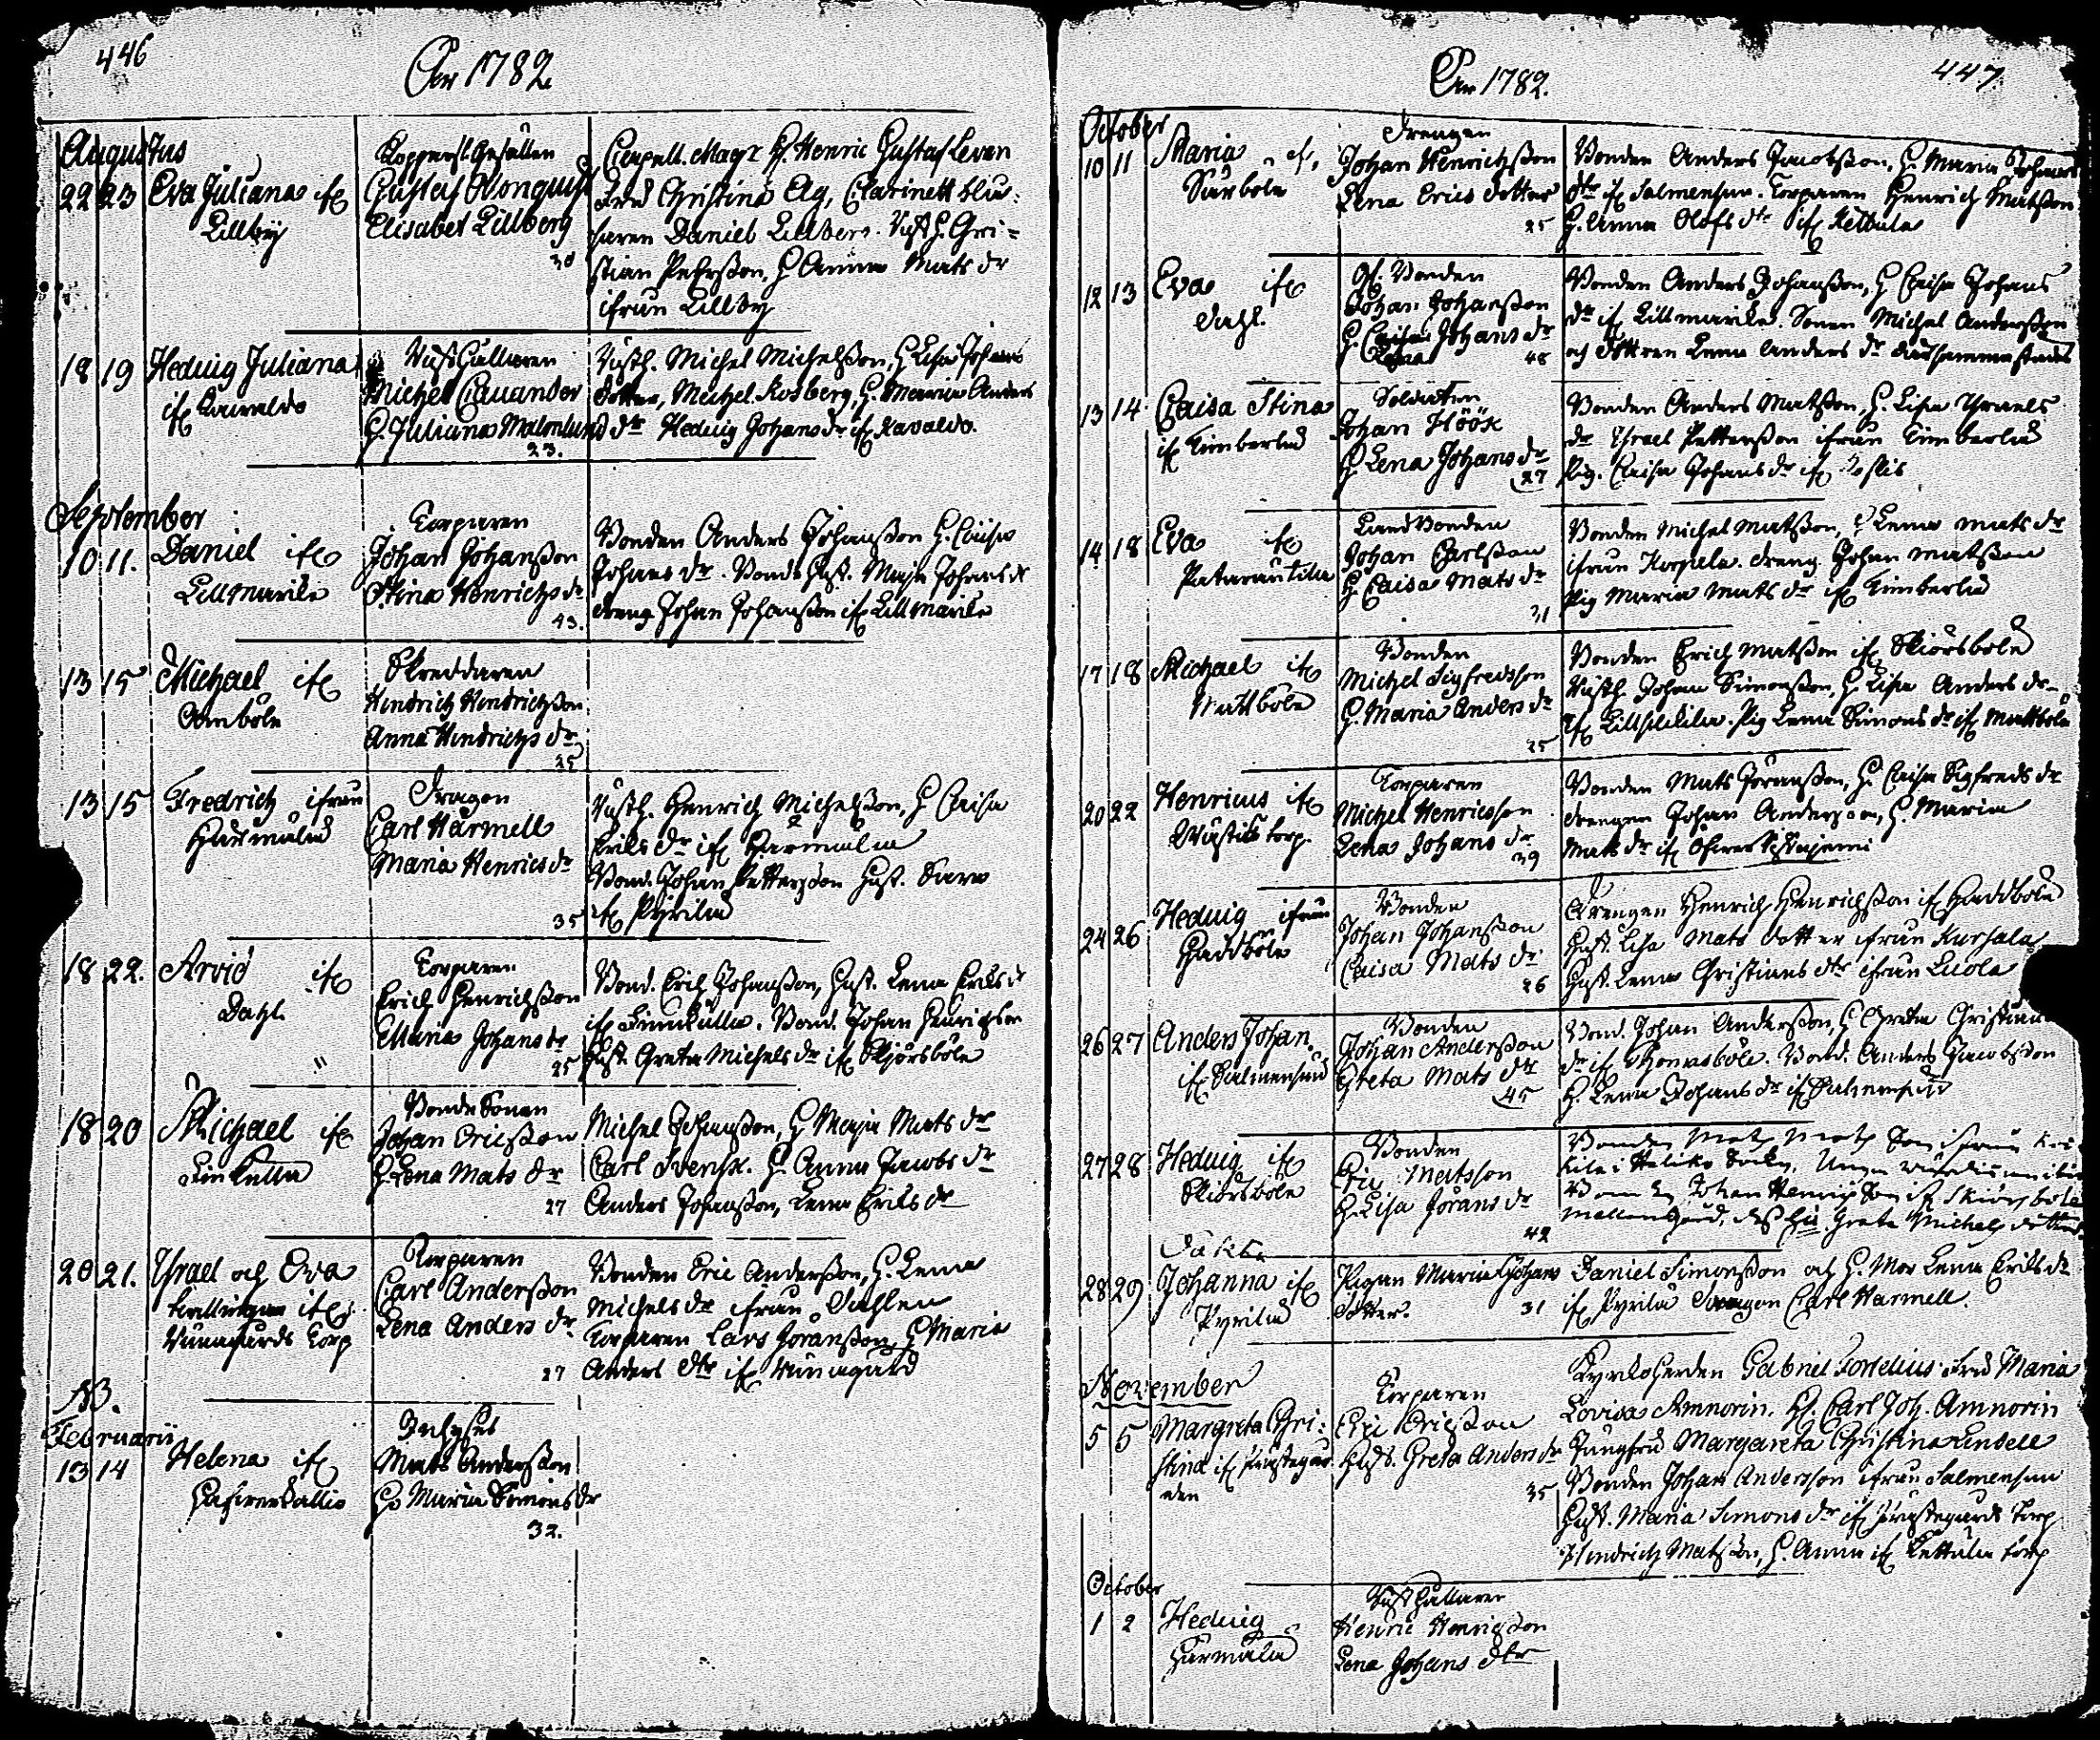 446
Åhr 1782
Augustus
22 23 Eva Juliana if
Lillby
Kopparsl. Gesällen
Gustaf Blonquist
Elisabet Lillberg
30
Capell. Mag. H. Henric Gustaf Levan
Fru Christina Elg, Clarinett blå-
saren Daniel Lillberg. Rusth. Chri-
stian Pehrsson, H Anna Mats dr
ifrån Lillby
18 19 Hedvig Juliana
if Kavaldo
Rusthållaren
Michel Cavander
H. Juliana Malmlund
23.
Rusth. Michel Michelsson, H Lisa Johans
dotter, Michel Rosberg, H. Maria Anders
dtr Hedvig Johans dr if Kavaldo.
September
10 11. Daniel if
Lillmarila
Torparen
Johan Johansson
Stina Henrichs dr
43.
Bonden Anders Johansson H. Caisa
Johans dr. Bonds Hust. Maja Johans dr
dräng Johan Johansson if Lillmarila
13 15 Michael if
Ambole
Skreddaren
Hindrich Hindrichsson
Anna Hindrichs dr
25
13 15 Fredrich ifrån
Harmala
Dragon
Carl Harmell
Maria Henrics dr
35
Rusth. Henrich Michelsson, H Caisa
Eriks dr if Harmala
Bond. Johan Pettersson Hust. Sara
if Pyrilä
18 22. Arvid if
Dahl.
Torparen
Erich Henrichsson
Maria Johans dr
25
Bond. Erich Johansson, Hust. Lena Eriks dr
if Finnkulla. Bond. Johan Henrichsson
Hust. Greta Michels dr if Skjörsböle
18 20 Michael if
Finkulla
Bonde Sonen
Johan Ericsson
H. Lena Mats dr
27
Michel Johansson, H Maja Mats dr
Carl Svensk. H. Anna Jacobs dr
Anders Johansson, Lena Eriks dr
20 21. Israel och Eva
tvillingar if
Torp
Torparen
Carl Andersson
Lena Anders dr
27
Bonden Eric Andersson, H. Lena
Michels dr ifrån Dahlen
Torparen Lars Göransson, H Maria
Anders dtr if
NB.
Februarii
13 14 Helena if
Inhyses
Mats Andersson
H. Maria Simons dr
32.
447.
Åhr 1782.
October
10 11 Maria if
Särbole
Drengen
Johan Henrichsson
Lena Erics dotter
25
Bonden Anders Jacobsson, H. Maria Johans
dtr if Salmensuu. Torparen Henrich Matsson
H. Anna Olofs dtr if Kettula
12 13 Eva if
Dahl.
Bonden
Johan Johansson
H. Johans dr
Lena
48
Bonden Anders Johansson, H Caisa Johans
dr if Lillmarila. Sonen Michel Andersson
och dottren Lena Anders dr
13 14 Caisa Stina
if Kimberlä
Soldaten
Johan Höök
H Lena Johans dr
27
Bonden Anders Matsson, H. Lisa Israels
dr Israel Pettersson ifrån Kimberlä
Pig. Caisa Johans dr if
14 18 Eva if
Patarautila
LandBonden
Johan Carlsson
H Caisa Mats dr
31
Bonden Michel Matsson, H Lena Mats dr
ifrån Korpela. dräng Johan Matsson
Pig Maria Mats dr if Kimberlä
17 18 Michael if
Mattböle
Bonden
Michel Sigfredsson
H. Maria Anders dr
25
Bonden Erich Matsson if Skiörsbole
Rusth. Johan Simonsson, H. Lisa Anders dr
Pig Lena Simons dr if Mattböle
20 22 Henricus if
Torp.
Torparen
Michel Henricsson
Lena Johans dr
39
Bonden Mats Jöransson, H. Caisa Sigfreds dr
drengen Johan Andersson, H. Maria
Mats dr if
24 26 Hedvig ifrån
Haddböle
Bonden
Johan Johansson
Caisa Mats dr
26
Drengen Henrich Henrichsson if Haddböle
Hust. Lisa Mats dotter ifrån Kurjala
Hust. Lena Christians dtr ifrån Luola
26 27 Anders Johan
if Salmensuu
Bonden
Johan Andersson
Greta Mats dtr
45
Bond. Johan Andersson, H Greta Christians
dr if Thomasböle. Bond. Anders Jacobsson
H. Lena Johans dr if Salmensuu
27 28 Hedvig if
Skiörsböle
Bonden
Eric Matsson
H. Lisa Jörans dr
42
Bonden Mats Mats Son ifrån
i Haliko Sokn.
Johan Son if Skiörsbole
Mellangård, dess Hu. Greta Michels dotter
Oäkta
28 29 Johanna if
Pyrilä
Pigan Maria Johans
dotter. 31
Daniel Simonsson och H. Mor Lena Eriks dr
if Pyrilä Dragon Carl Harmell.
November
5 5 Margreta Chri-
stina if Prästegår
den
Torparen
Eric Ericsson
Hust. Greta Anders dr
35
Kyrkoherden Gabriel Fortelius Fru Maria
Lovisa Amnorin. H. Carl Joh. Amnorin
Jungfru Margareta Christina Lindell
Bonden Johan Andersson ifrån Salmensuu
Hust. Maria Simons dr if Prästegårds torp
Hindrich Matsson, H. Anna if Kettula torp
October
1 2 Hedvig
Harmala
Rusthållaren
Henric Henricsson
Lena Johans dtr